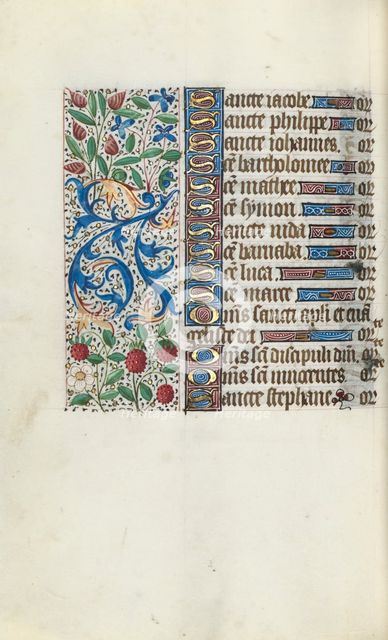 Sancte iacobe or
Sancte philippe or
Sancte iohannes. or
Scē bartholomee or
Scē mathee or
Scē symon or
Sancte iuda or
Scē barnaba or
Scē luca or
Scē marce or
Om̄s sancti apl̄i et euā
geliste dei or
Om̄s scī discipuli dn̄i. or
Om̄s scī innocentes. or
Sancte stephane or
Heritage Heritage